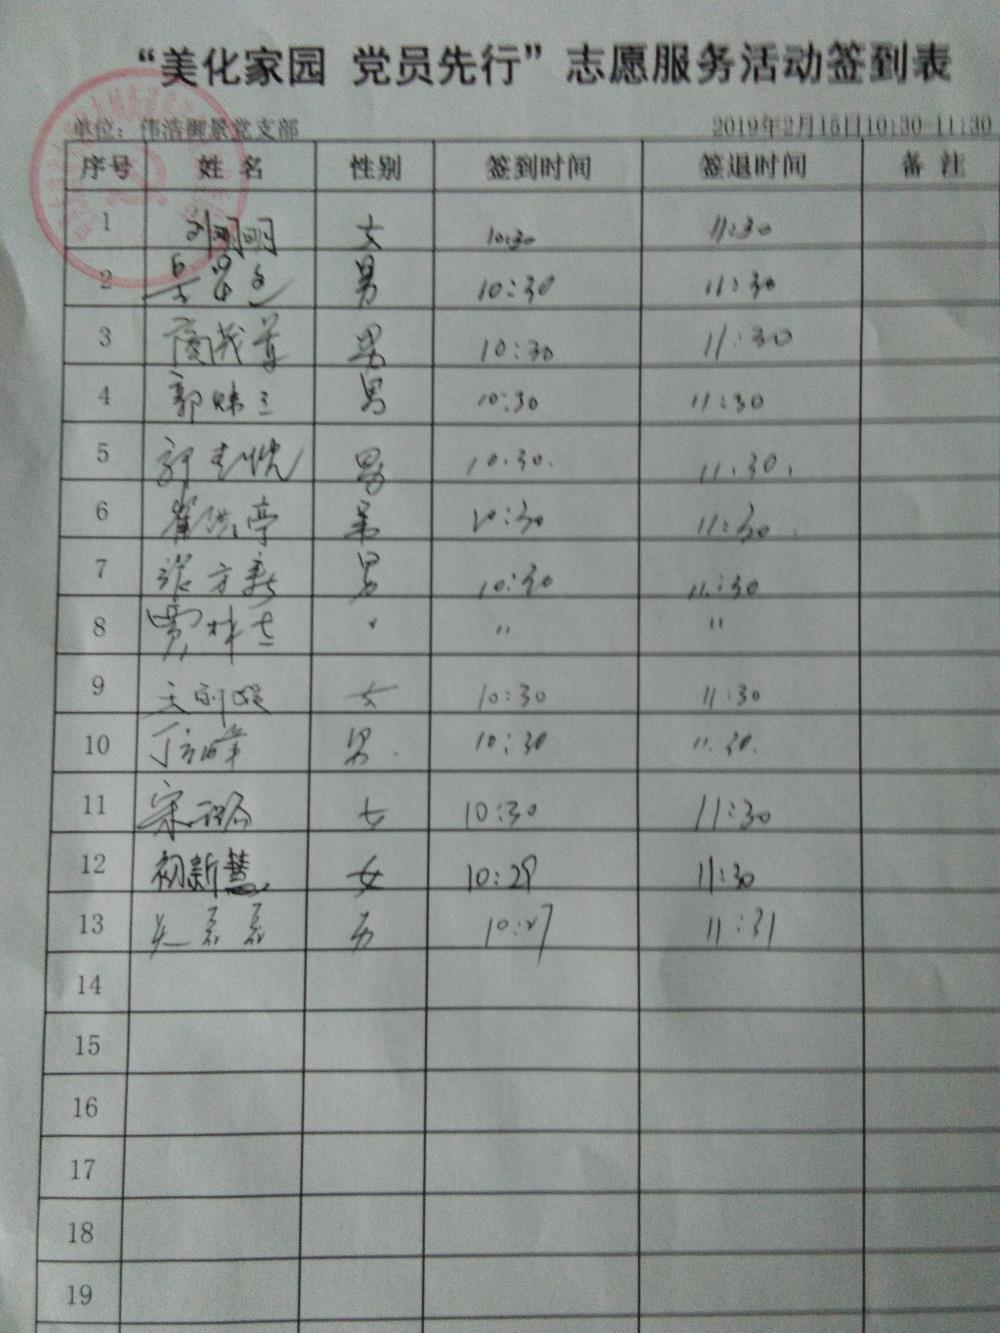 “美化家园 党员先行”志愿服务活动签到表
单位：伟浩御景党支部 2019年2月15日10:30-11:30
序号 姓名 性别 签到时间 签退时间 备注
1 刘明明 女 10:30 11:30
2 男 10:30 11:30
3 男 10:30 11:30
4 郭妹兰 男 10:30 11:30
5 男 10:30. 11:30.
6 崔洪亭 男 10:30 11:30
7 张方新 男 10:30 11:30
8 贾林 " "
9 女 10:30 11:30
10 男. 10:30 11.30.
11 宋 女 10:30 11:30
12 初新慧 女 10:29 11:30
13 男 10:27 11:31
14
15
16
17
18
19